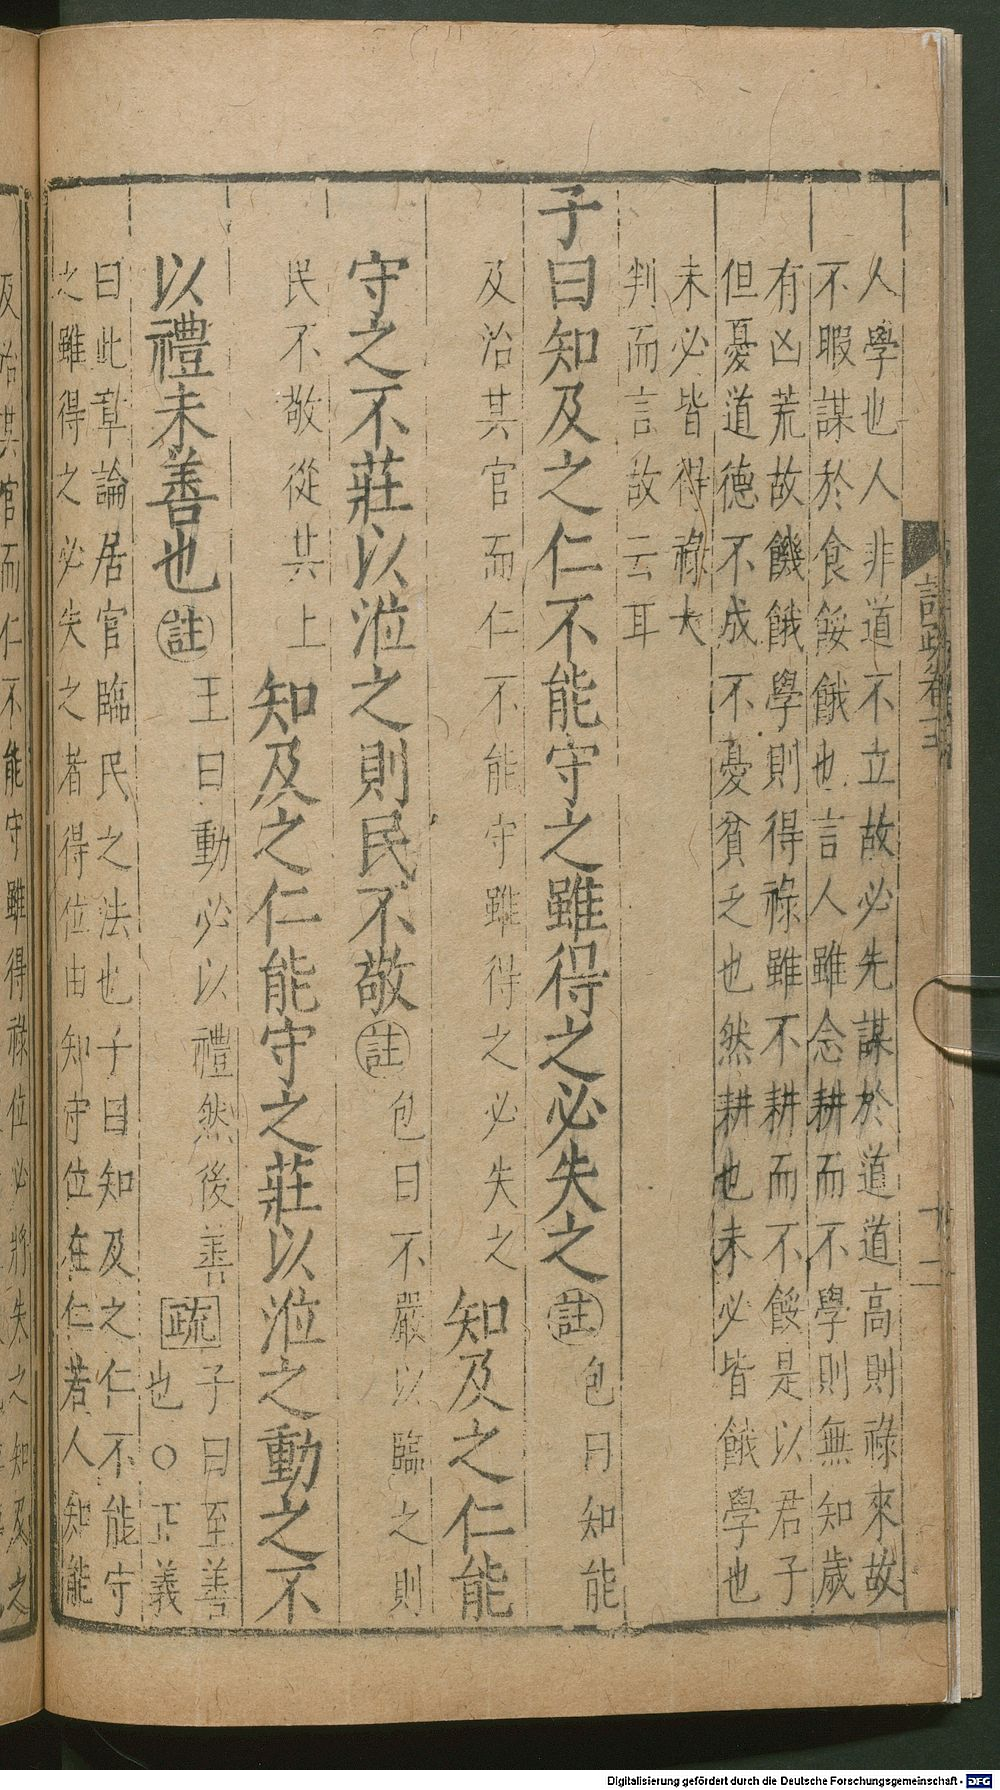 人學也人非道不立故必先謀於道道高則祿來故
不暇謀於食餒餓也言人雖念耕而不學則無知歲
有凶荒故饑餓學則得祿雖不耕而不餒是以君子
但憂道德不成不憂貧乏也然耕也未必皆餓學也
未必皆得祿大
判而言故云耳
子曰知及之仁不能守之雖得之必失之註包曰知能
及治其官而仁不能守雖得之必失之
知及之仁能
守之不莊以涖之則民不敬註包曰不嚴以臨之則
民不敬從其上
知及之仁能守之莊以涖之動之不
以禮未善也註王曰動必以禮然後善疏子曰至善
也○正義
曰此章論居官臨民之法也子曰知及之仁不能守
之雖得之必失之者得位由知守位在仁若人知能
及治其官而仁不能守雖得祿位必將失之知及之
註疏卷
十二
Digitalisierung gefördert durch die Deutsche Forschungsgemeinschaft - DFG